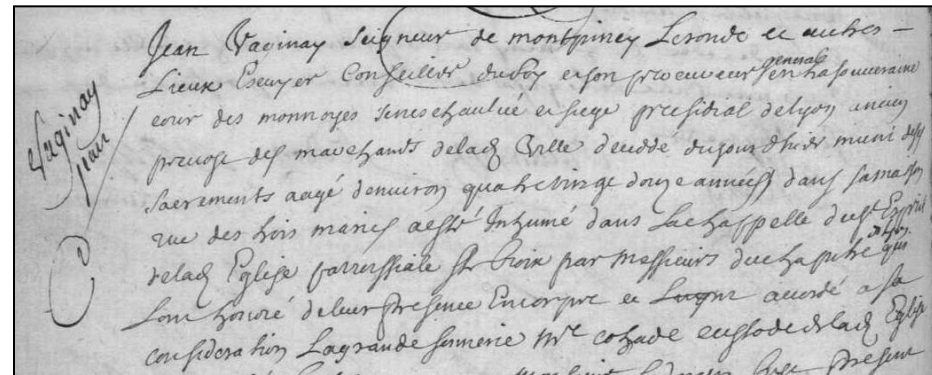 Vaginay
Jean
Jean Vaginay Seigneur de montpiney Leronde et autres –
Lieux Escuyer Conseiller du Roy et son procureur general en la souveraine
cour des monnoyes seneschaulcé et siege præsidial de lyon ancien
prevost des marchands de lad Ville decedé dujourdhier muni des
sacrements aagé denviron quatre vingt douze années dans sa maison
rue des trois maries a esté Inhumé dans la chappelle du st Esprit
de lad Eglise parroissiale ste Croix par messieurs du chapitre de lyon qui
Lont honoré de leur presence En corps et acordé a sa
consideration La grande sonnerie mre custode de lad Eglise
present